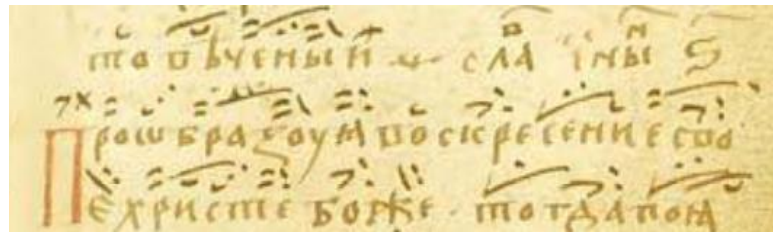 товѣченыи · сла їны ѕ
Проѡбразоуѧ воскресение сво
е христе боже · тогда поѧ